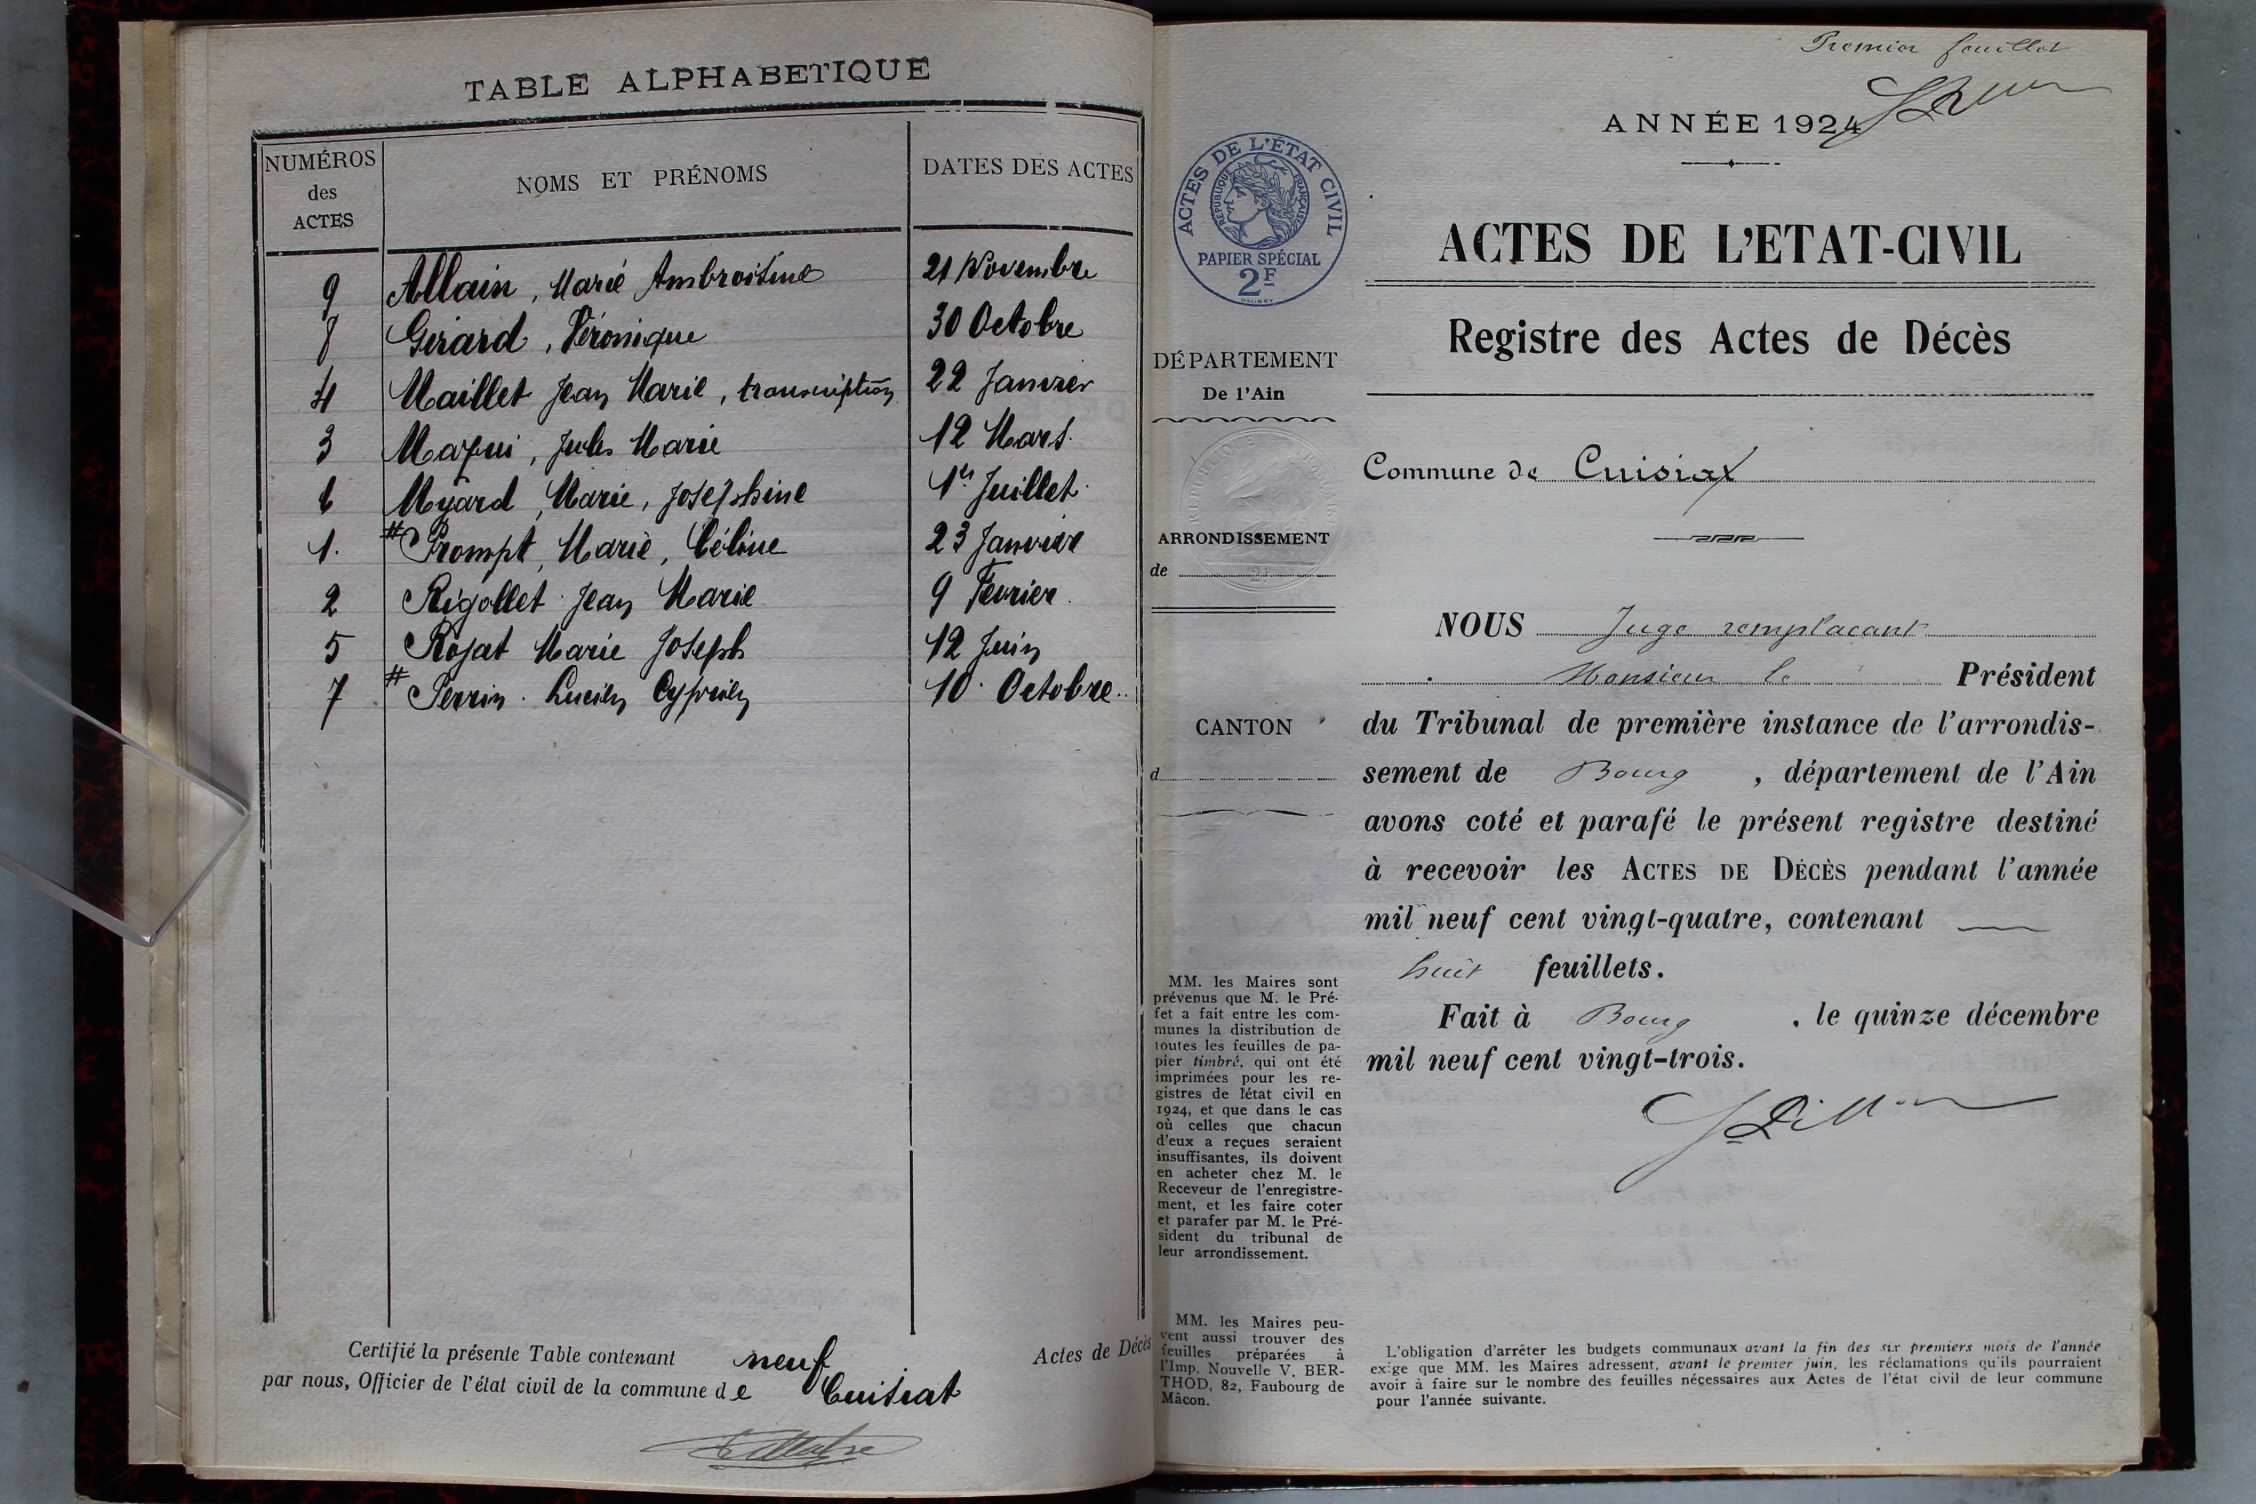 TABLE ALPHABETIQUE
NUMÉROS
des
ACTES
NOMS ET PRÉNOMS
DATES DES ACTES
9 Allain, Marie Ambroisine 21 Novembre
8 Girard, Véronique 30 Octobre
4 Maillet Jean Marie, transcription 22 Janvier
3 Jules Marie 12 Mars
6 Myard, Marie, Joséphine 1er Juillet
1. # Prompt, Marie, Céline 23 Janvier
2 Rigollet Jean Marie 9 Février
5 Rojat Marie Joseph 12 Juin
7 # Perrin. Lucien Cyprien 10. Octobre
Certifié la présente Table contenant neuf Actes de Décès
par nous, Officier de l'état civil de la commune de Cuisiat
Premier feuillet
ANNÉE 1924
ACTES DE L'ÉTAT CIVIL
RÉPUBLIQUE FRANÇAISE
PAPIER SPÉCIAL
2F
DÉPARTEMENT
De l'Ain
ARRONDISSEMENT
de
CANTON
d
MM. les Maires sont
prévenus que M. le Pré-
fet a fait entre les com-
munes la distribution de
toutes les feuilles de pa-
pier timbré, qui ont été
imprimées pour les re-
gistres de l'état civil en
1924, et que dans le cas
où celles que chacun
d'eux a reçues seraient
insuffisantes, ils doivent
en acheter chez M. le
Receveur de l'enregistre-
ment, et les faire coter
et parafer par M. le Pré-
sident du tribunal de
leur arrondissement.
MM. les Maires peu-
vent aussi trouver des
feuilles préparées à
l'Imp. Nouvelle V. BER-
THOD, 82, Faubourg de
Mâcon.
ACTES DE L'ETAT-CIVIL
Registre des Actes de Décès
Commune de Cuisiat
NOUS Juge remplaçant
Monsieur le Président
du Tribunal de première instance de l'arrondis-
sement de Bourg, département de l'Ain
avons coté et parafé le présent registre destiné
à recevoir les ACTES DE DÉCÈS pendant l'année
mil neuf cent vingt-quatre, contenant
huit feuillets.
Fait à Bourg, le quinze décembre
mil neuf cent vingt-trois.
L'obligation d'arrêter les budgets communaux avant la fin des six premiers mois de l'année
exige que MM. les Maires adressent, avant le premier juin, les réclamations qu'ils pourraient
avoir à faire sur le nombre des feuilles nécessaires aux Actes de l'état civil de leur commune
pour l'année suivante.